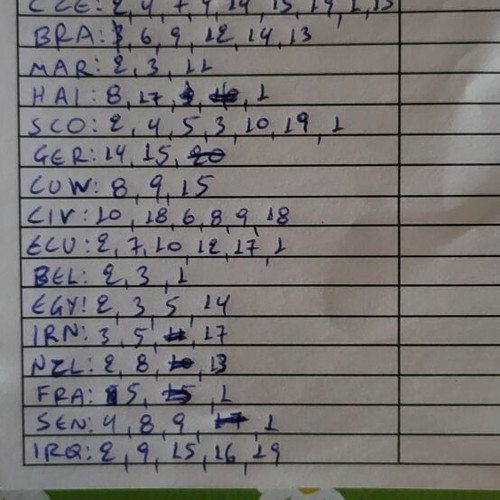 CZE: 2, 4, 7, 9, 14, 15, 19, 1, 15
BRA: 6, 9, 12, 14, 13
MAR: 2, 3, 11
HAI: 8, 17, 1
SCO: 2, 4, 5, 3, 10, 19, 1
GER: 14, 15, 20
CUW: 8, 9, 15
CIV: 10, 18, 6, 8, 9, 18
ECU: 2, 7, 10, 12, 17, 1
BEL: 2, 3, 1
EGY: 2, 3, 5, 14
IRN: 3, 5, 11, 17
NZL: 2, 8, 10, 13
FRA: 5, 15, 1
SEN: 4, 8, 9, 17, 1
IRQ: 2, 9, 15, 16, 19